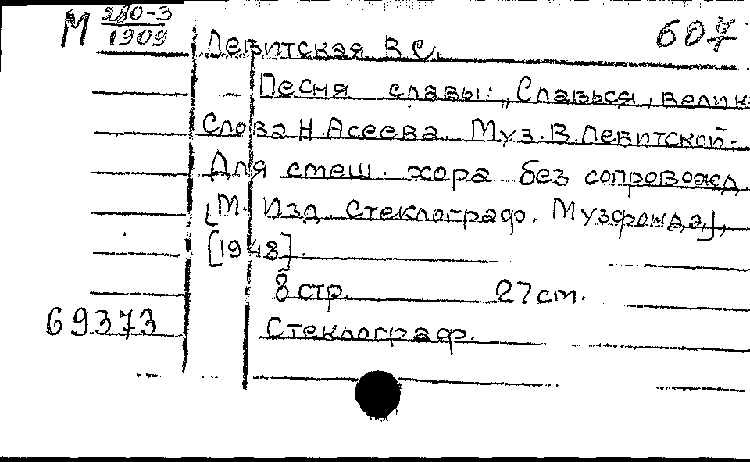 М 280-3
1909
607
Левитская В С.
Песня славы: „Славься, велик
Слова Н Асеева Муз. В Левитской-
Для смеш. хора без сопровожд
[М. Изд Стеклограф. Музфонда],
[1948].
8 стр. 27 см.
69373
Стеклограф.